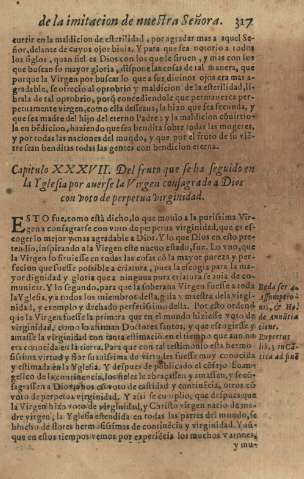 de la imitacion de nuestra Señora. 327
currir en la maldicion de esterilidad, por agradar mas a aquel Se-
ñor, delante de cuyos ojos biuia. Y para que sea notorio a todos
los siglos, quan fiel es Dios con los que le siruen, y mas con los
que buscan su mayor gloria, dispone las cosas de tal manera, que
porque la Virgen por buscar lo que a sus diuinos ojos era mas a-
gradable, se ofrecio al oprobrio y maldicion de la esterilidad, li-
brala de tal oprobrio, porque concediendole que permanezca per-
petuamente virgen, como ella desseaua, la hizo que sea fecunda, y
que sea madre del hijo del eterno Padre: y la maldicion conuirtio-
la en bēdicion, haziendo que sea bendita sobre todas las mugeres,
y por todas las naciones del mundo, y que por el fruto de su viē-
tre sean benditas todas las gentes con bendicion eterna.
Capitulo XXXVII. Del fruto que se ha seguido en
la Yglesia por auerse la Virgen consagrado a Dios
con voto de perpetua virginidad.
ESTO fue, como está dicho, lo que mouio a la purissima Vir-
gen a consagrarse con voto de perpetua virginidad, que es
coger lo mejor y mas agradable a Dios. Y lo que Dios en esto pre-
tendio, inspirando a la Virgen este nueuo estado, fue. Lo vno, que
la Virgen le siruiesse en todas las cosas cō la mayor pureza y per-
feccion que fuesse possible a criatura, pues la escogia para la ma-
yor dignidad y gloria que a ninguna pura criatura se auia de co-
municar. Y lo segundo, para que la soberana Virgen fuesse a toda
la Yglesia, y a todos los miembros della guia y maestra de la virgi-
nidad, y exemplo y dechado perfectissimo della. Por esto ordenò
que la Virgen fuesse la primera que en el mundo hiziesse voto de
virginidad, como lo afirman Doctores santos, y que escogiesse y
amasse la virginidad con tanta estimacion en el tiempo que aun no
era conocida en la tierra. Para que con tal testimonio esta hermo-
sissima virtud y flor suauissima de virtudes fuesse muy conocida
y estimada en la Yglesia. Y despues de publicado el
los fieles la abraçassen y amassen, y se
a Dios con voto de castidad y continēcia, otros cō
voto de perpetua virginidad. Y assi se cumplio, que despues que
la Virgen hizo voto de virginidad, y Christo virgen nacio de ma-
dre virgen, la Yglesia estendida en todas las partes del mundo, se
hinchio de flores hermosissimas de continēcia y virginidad. Y aū-
que en estos tiempos vemos por experiēcia los muchos varones,
y mu-
Beda ser. de
tiene.
Rupertus